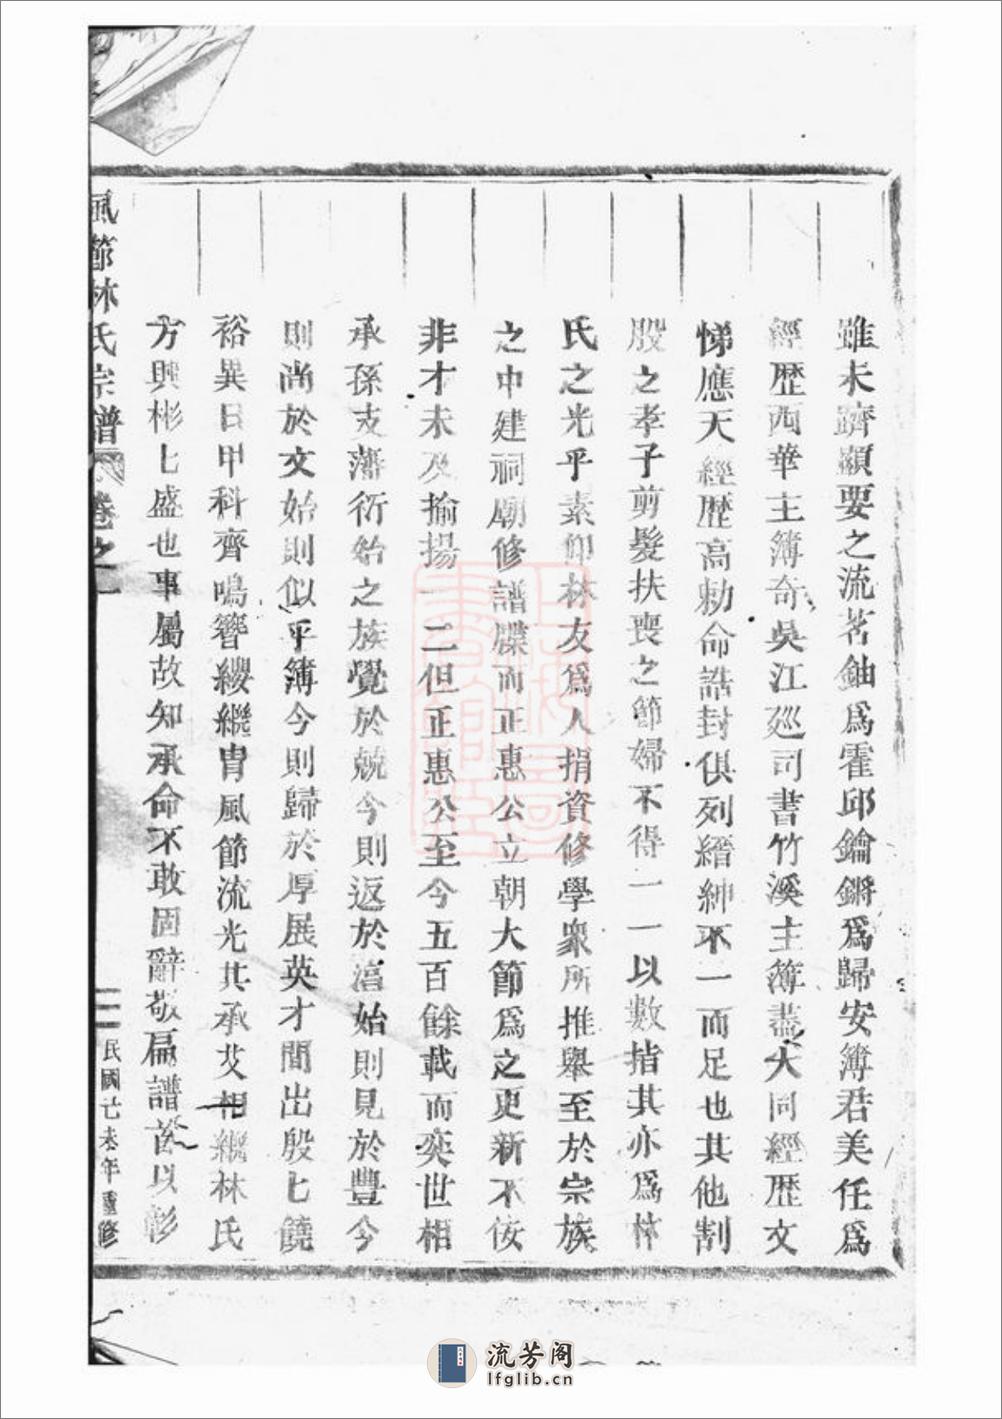 雖未躋顯要之流茗鈾爲霍邱鑰鏘爲歸安簿君美任爲
經歷西華主簿奇吳江廵司書竹溪主簿盡大同經歷文
悌應天經歷高勅命誥封俱列縉紳不一而足也其他割
股之孝子剪髮扶喪之節婦不得一一以數指其亦爲林
氏之光乎素仰林友爲人捐資修學衆所推舉至於宗族
之中建祠廟修譜牒而正惠公立朝大節爲之更新不佞
非才未及揄揚一二但正惠公至今五百餘載而奕世相
承孫支蕃衍始之族覺於兢今則返於淳始則見於豐今
則尚於文始則似乎簿今則歸於厚展英才間出殷七饒
裕異日甲科齊鳴簪纓繼冑風節流光其承艾相繼林氏
方興彬七盛也事屬故知承命不敢固辭敬扁譜首以彰
風節林氏宗譜 卷之一
二 民國亡未年重修
流芳阁
lfglib.cn